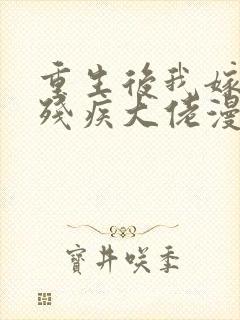 重生後我嫁
殘疾大佬漫
寶井咲季